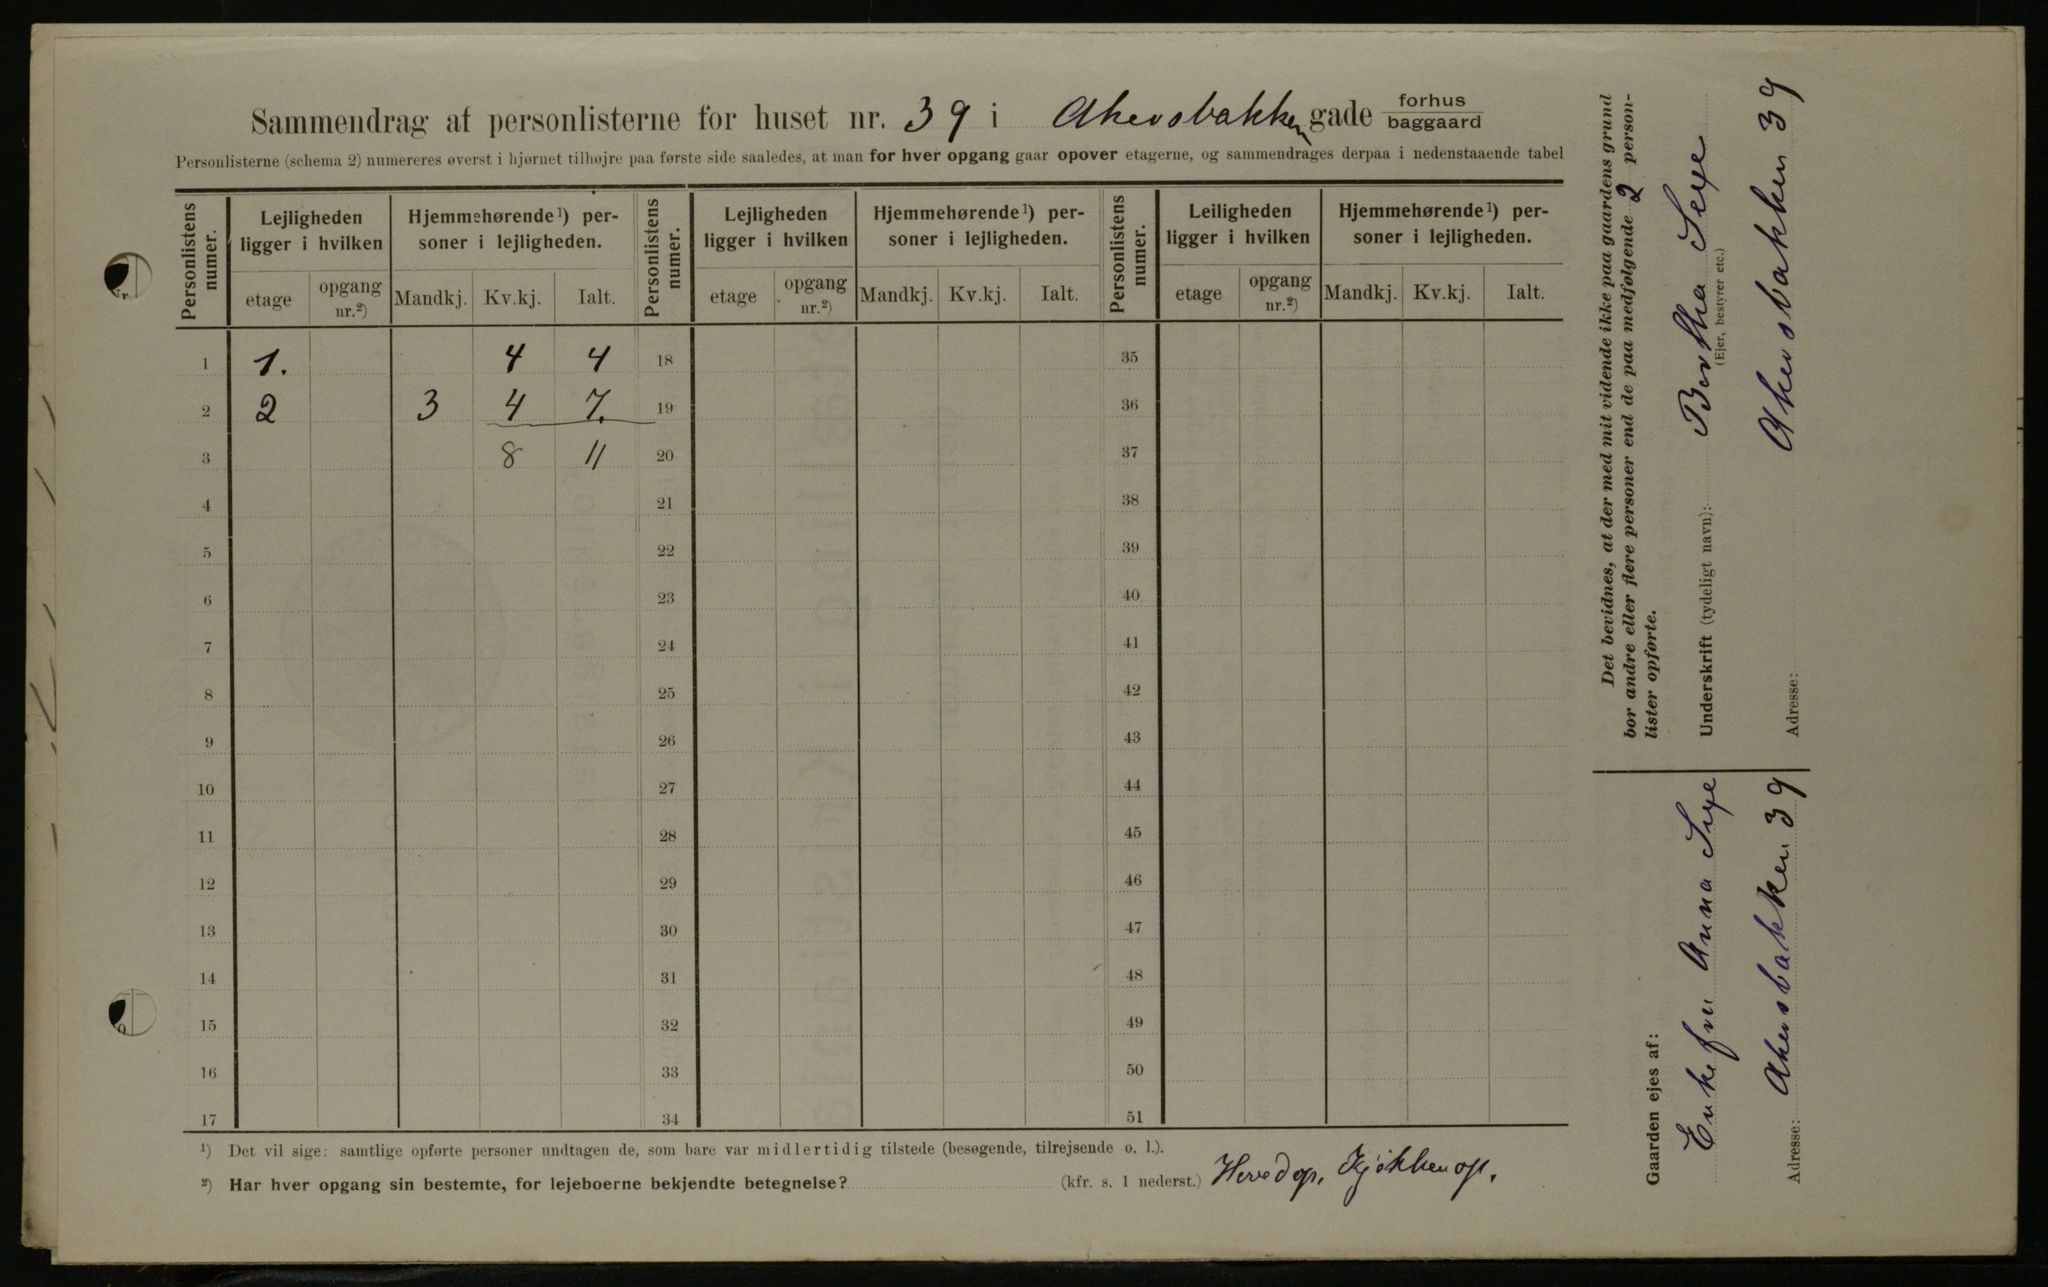 Sammendrag af personlisterne for huset nr. 39 i Akersbakken gade forhus baggaard
Personlisterne (schema 2) numereres øverst i hjørnet tilhøjre paa første side saaledes, at man for hver opgang gaar opover etagerne, og sammendrages derpaa i nedenstaaende tabel
Personlistens numer. Lejligheden ligger i hvilken Hjemmehørende¹) personer i lejligheden. Personlistens numer. Lejligheden ligger i hvilken Hjemmehørende¹) personer i lejligheden. Personlistens numer. Leiligheden ligger i hvilken Hjemmehørende¹) personer i lejligheden.
etage opgang nr.²) Mandkj. Kv.kj. Ialt. etage opgang nr.²) Mandkj. Kv.kj. Ialt. etage opgang nr.²) Mandkj. Kv.kj. Ialt.
1 1. 4 4 18 35
2 2 3 4 7. 19 36
3 8 11 20 37
4 21 38
5 22 39
6 23 40
7 24 41
8 25 42
9 26 43
10 27 44
11 28 45
12 29 46
13 30 47
14 31 48
15 32 49
16 33 50
17 34 51
¹) Det vil sige: samtlige opførte personer undtagen de, som bare var midlertidig tilstede (besøgende, tilrejsende o. l.).
²) Har hver opgang sin bestemte, for lejeboerne bekjendte betegnelse? (kfr. s. 1 nederst.) Hovedop. Kjøkkenop.
Det bevidnes, at der med mit vidende ikke paa gaardens grund
bor andre eller flere personer end de paa medfølgende 2 person-
lister opførte.
Underskrift (tydeligt navn): Bertha Seye
(Ejer, bestyrer etc.)
Adresse: Akersbakken 39
Gaarden ejes af:
Enkefru Anna Seye
Adresse: Akersbakken 39